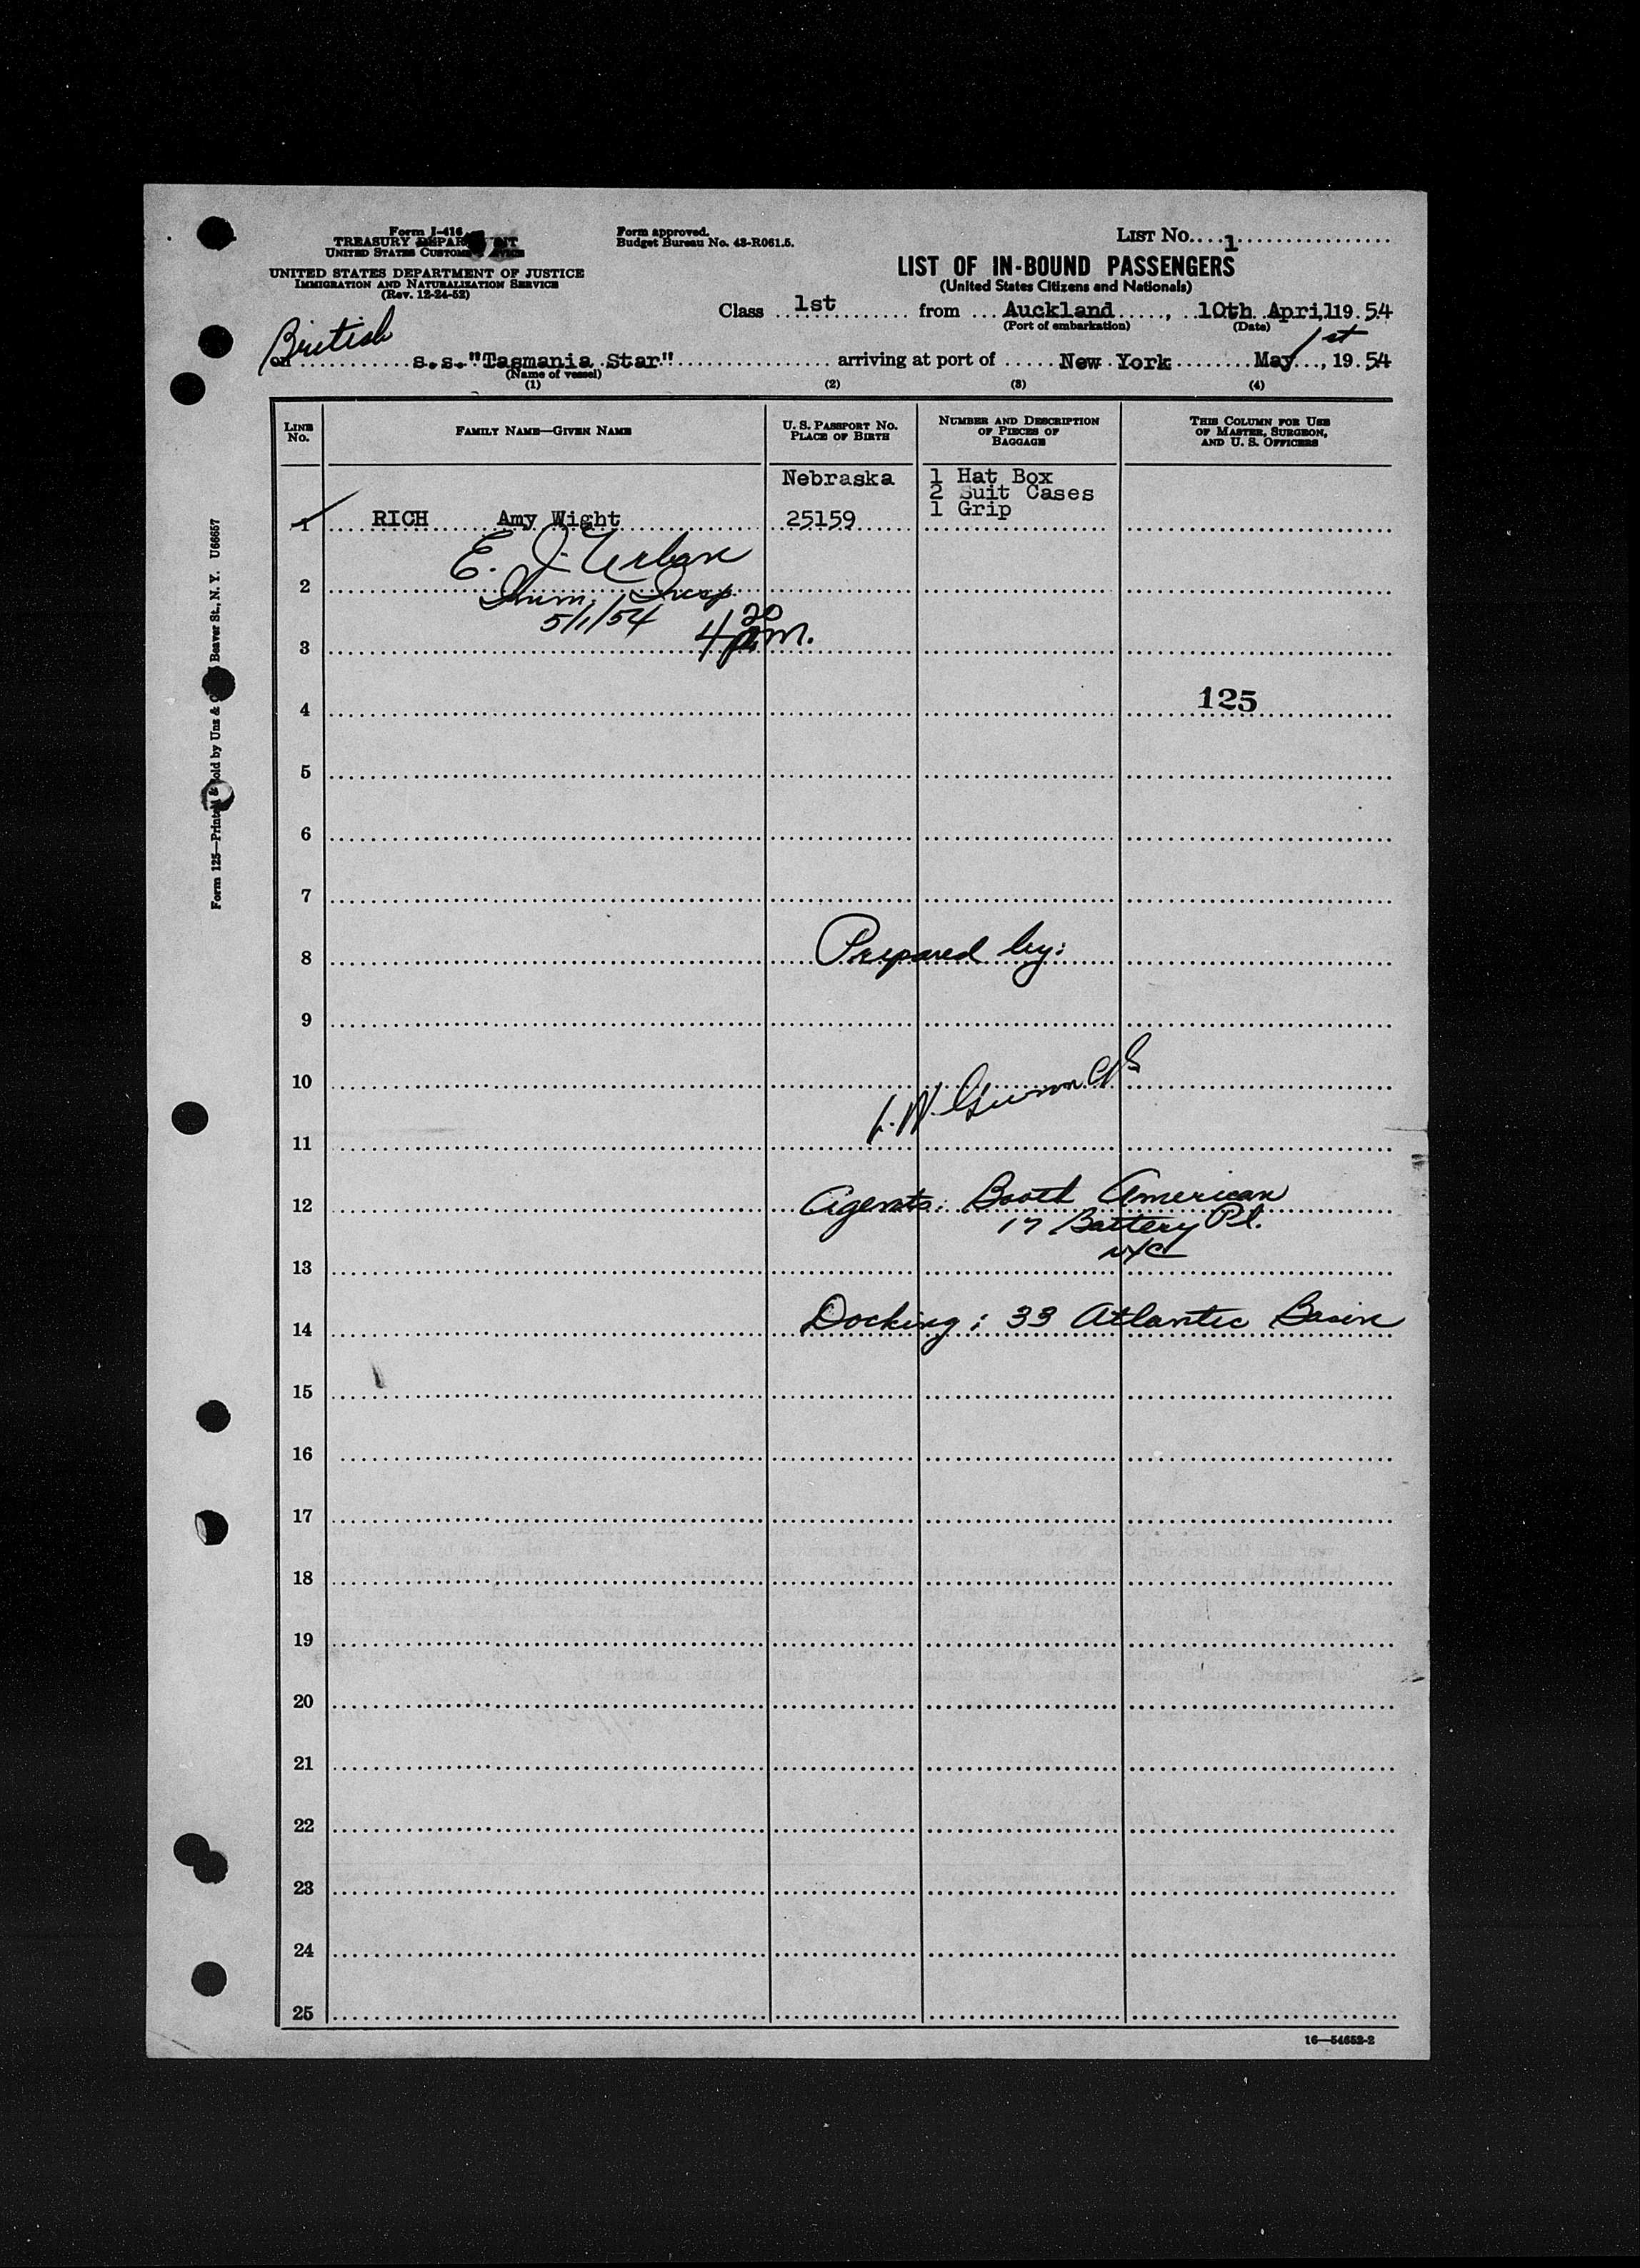 Form I-416
TREASURY DEPARTMENT
UNITED STATES CUSTOMS SERVICE
UNITED STATES DEPARTMENT OF JUSTICE
IMMIGRATION AND NATURALIZATION SERVICE
(Rev. 12-24-52)
Form approved.
Budget Bureau No. 43-R061.5.
LIST NO. 1
LIST OF IN-BOUND PASSENGERS
(United States Citizens and Nationals)
Class 1st from Auckland, 10th April, 19 54
(Port of embarkation) (Date)
British
on s.s. "Tasmania Star" arriving at port of New York May 1st, 19 54
(Name of vessel)
(1) (2) (3) (4)
LINE NO.
FAMILY NAME—GIVEN NAME
U. S. PASSPORT NO.
PLACE OF BIRTH
NUMBER AND DESCRIPTION
OF PIECES OF
BAGGAGE
THIS COLUMN FOR USE
OF MASTER, SURGEON,
AND U. S. OFFICERS
Nebraska 1 Hat Box
2 Suit Cases
1 RICH Amy Wight 25159 1 Grip
E. J. Urban
2 Imm. Insp.
5/1/54
3 4 20 p.m.
4 125
5
6
7
8 Prepared by:
9
10
11
12 Agents: Booth American
17 Battery Pl.
NYC
13
14 Docking: 33 Atlantic Basin
15
16
17
18
19
20
21
22
23
24
25
16—54652-2
Form 125—Printed & Sold by Unz & Beaver St., N. Y. U66657